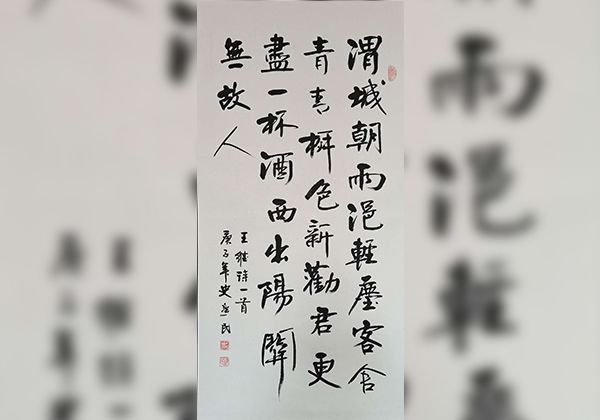 渭城朝雨浥輕塵客舍
青青柳色新勸君更
盡一杯酒西出陽關
無故人
王維詩一首
庚子年史民